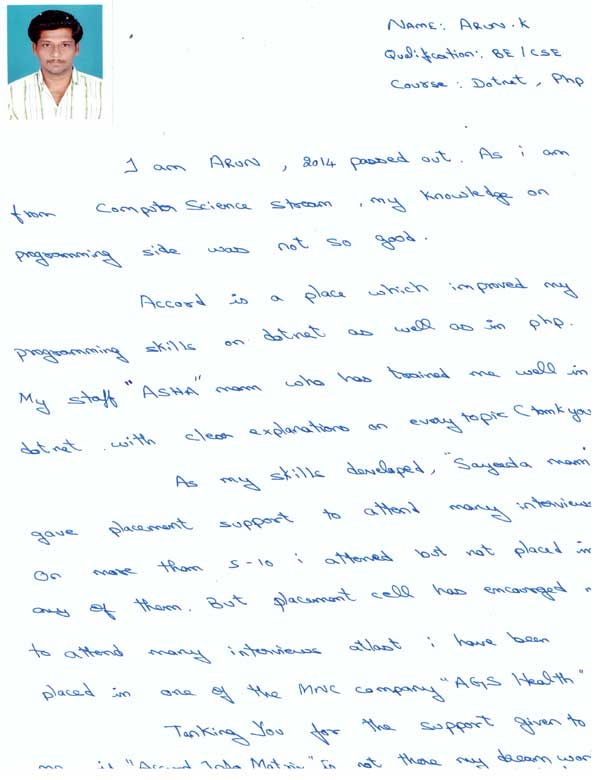 NAME: ARUN.K
Qulifcation: BE / CSE
Course : Dotnet, Php
I am ARUN, 2014 passed out. As i am
from Computer Science stream, my knowledge on
programming side was not so good.
Accord is a place which improved my
programming skills on dotnet as well as in php.
My staff "ASHA" mam who has trained me well in
dotnet with clear explanations on every topic (tank you
As my skills developed, "Sayeeda mam
gave placement support to attend many interviews
On more than 5-10 i attened but not placed in
any of them. But placement cell has encarged
to attend many interviews atlast i have been
placed in one of the MNC company "AGS Health"
Tanking You for the support given to
me if "Accord Info Matrix" is not there my dream